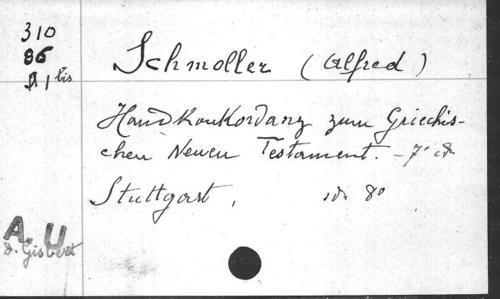 310
86
A 1 bis
Schmoller (Alfred)
Handkonkordanz zum Griechis-
chen Neuen Testament. – 7e éd.
Stuttgart, sd. 8°
A. U
d. Gisbert